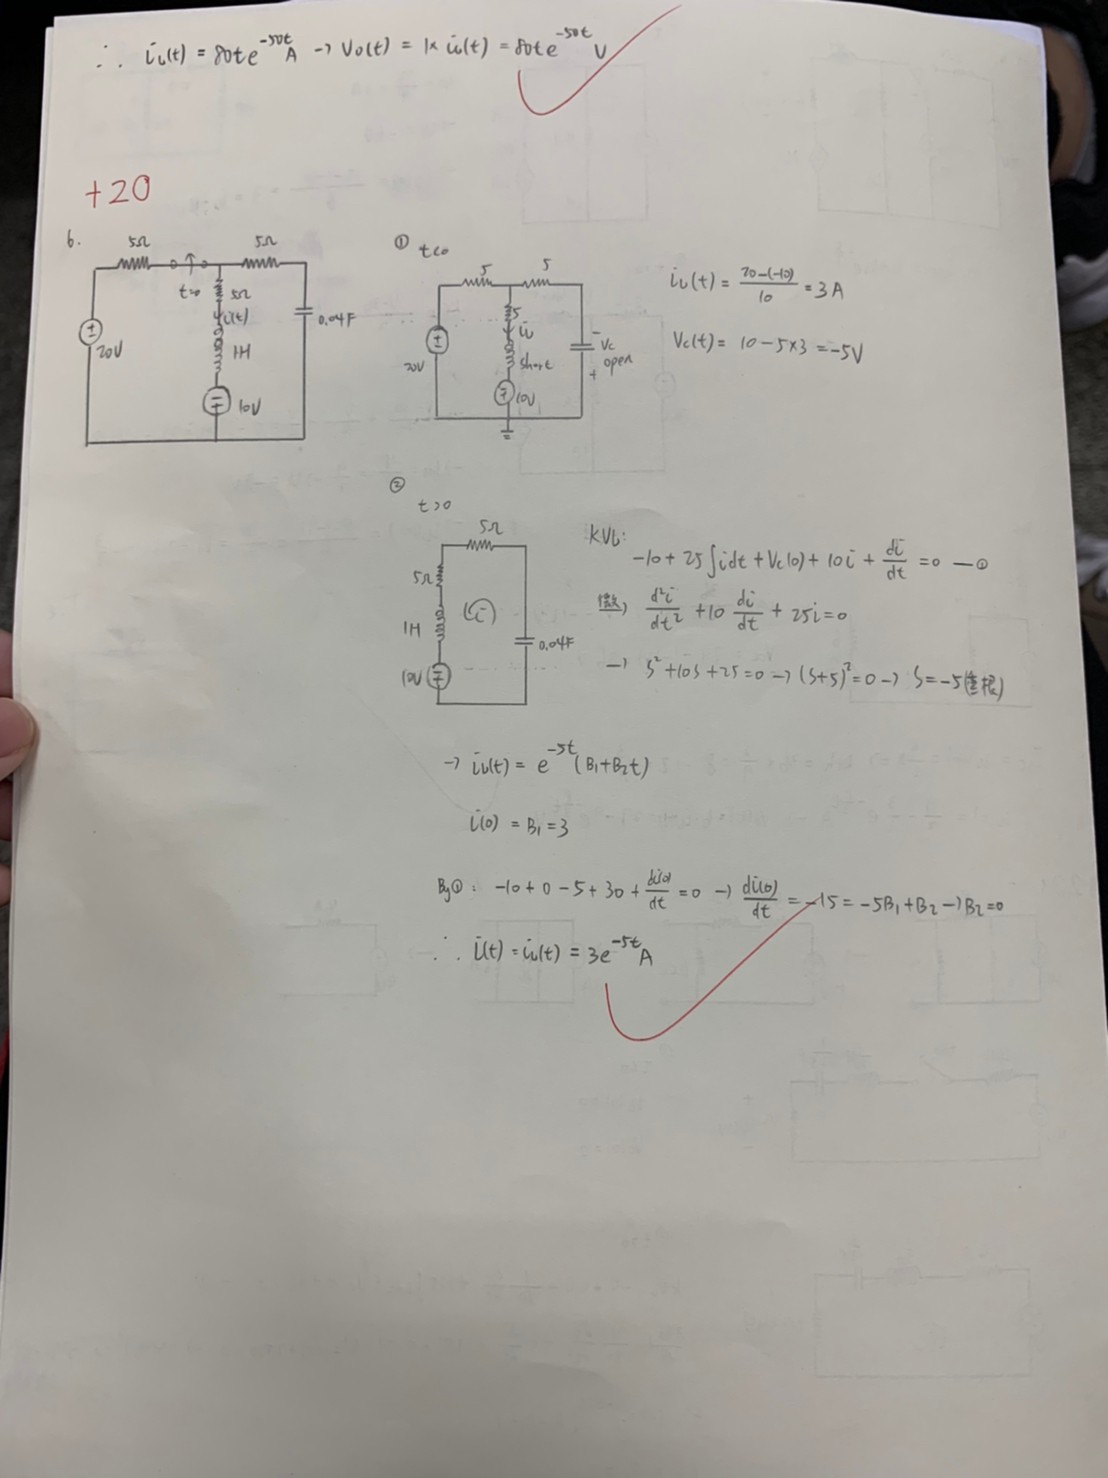 ∴ iL(t) = 80te^-50t A → Vo(t) = 1× iL(t) = 80te^-50t V
+20
6.
5Ω 5Ω
t=0 5Ω
i(t)
20V 1H 0.04F
10V
① t<0
5 5
5
iL
20V short − Vc + open
10V
iL(t) = 20-(-10)/10 = 3A
Vc(t) = 10-5×3 = -5V
② t>0
5Ω
5Ω
i
1H 0.04F
10V
KVL:
-10 + 25∫idt + Vc(0) + 10i + di/dt = 0 —①
微) d²i/dt² + 10 di/dt + 25i = 0
→ S² + 10S + 25 = 0 → (S+5)² = 0 → S = -5 (重根)
→ iL(t) = e^-5t (B₁+B₂t)
i(0) = B₁ = 3
By①: -10 + 0 - 5 + 30 + di(0)/dt = 0 → di(0)/dt = -15 = -5B₁+B₂ → B₂=0
∴ i(t) = iL(t) = 3e^-5t A